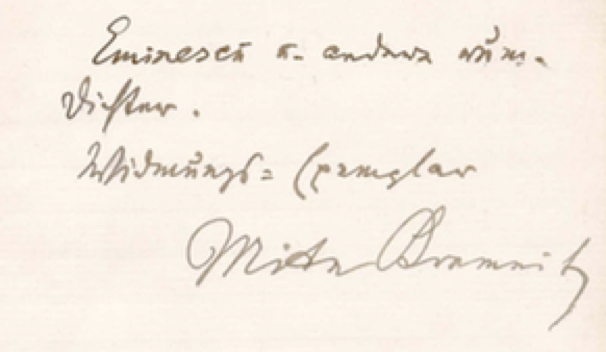 Eminescu u. andere rum.
Dichter.
Widmungs= Exemplar
Mite Kremnitz